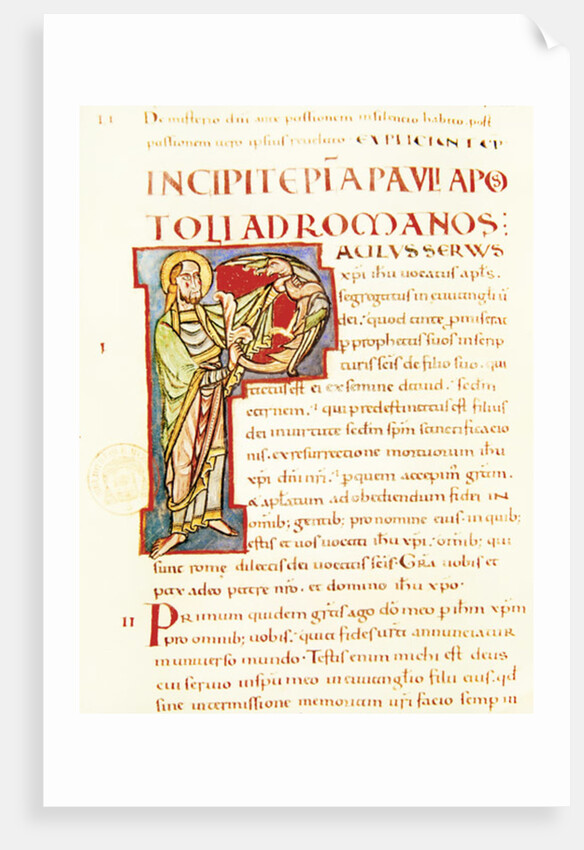 II De misterio dni ante passionem insilencio habito. post
passionem uero ipsius reuelato. EXPLICIANT CAP
INCIPIT EPĪA PAVLI APOS
TOLI AD ROMANOS:
PAULUS SERUUS
I xp̄i ihu uocatus apl̄s.
segregatus in euuangliū
dei. quod ante promiserat
p prophetas suos in scrip
turis scīs de filio suo. qui
factus est ei ex semine dauid. sedm
carnem. qui predestinatus est filius
dei in uirtute sedm sp̄m sanctificacio
nis. ex resurrectione mortuorum ihu
xp̄i dn̄i nr̄i. p quem accepim̄ grām.
& apl̄atum ad obediendum fidei IN
omīb; gentib; pro nomine eius. in quib;
estis et uos uocati ihu xp̄i. omīb; qui
sunt romę dilectis dei uocatis scīs. Gr̄a uobis et
pax a deo patre nr̄o. et domino ihu xp̄o.
II Primum quidem grās ago dō meo p ihm xp̄m
pro omnib; uobis. quia fides ur̄a annunciatur
in uniuerso mundo. Testis enim michi est deus
cui seruio in sp̄u meo in euuanglio filii eius. qd
sine intermissione memoriam ur̄i facio semp in